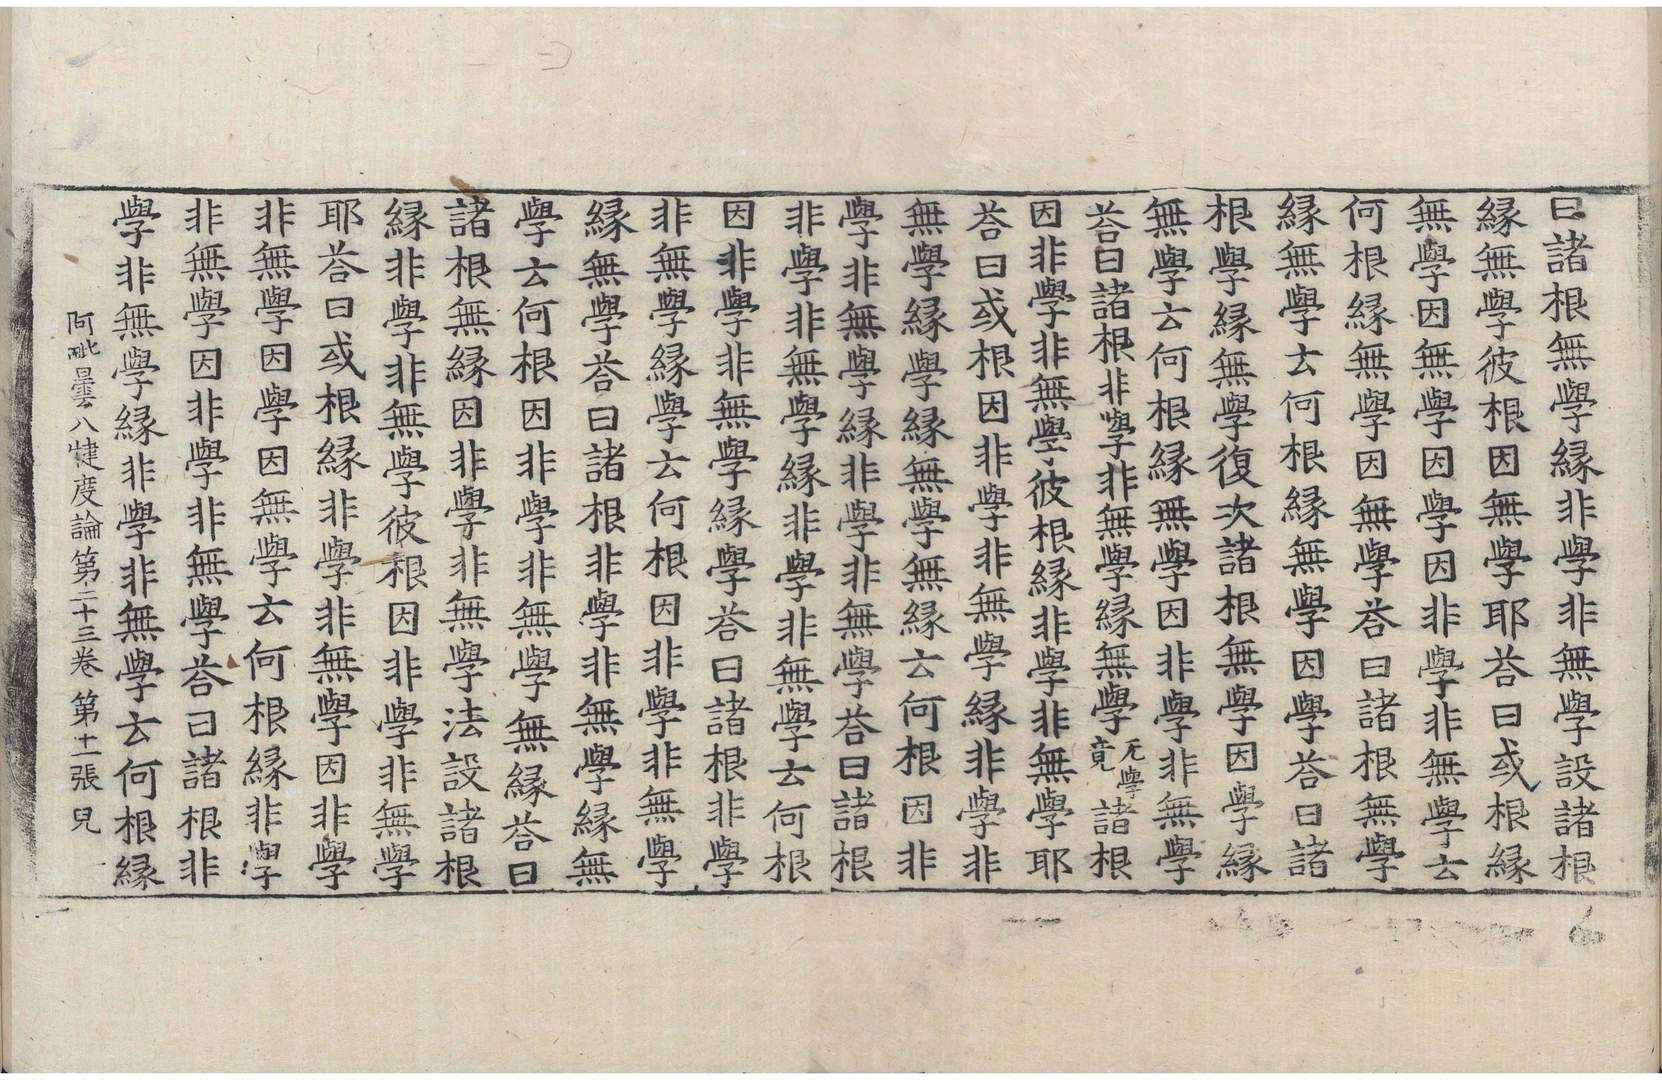 曰諸根無學緣非學非無學設諸根
緣無學彼根因無學耶荅曰或根緣
無學因無學因學因非學非無學云
何根緣無學因無學荅曰諸根無學
緣無學云何根緣無學因學荅曰諸
根學緣無學復次諸根無學因學緣
無學云何根緣無學因非學非無學
荅曰諸根非學非無學緣無學无學竟諸根
因非學非無學彼根緣非學非無學耶
荅曰或根因非學非無學緣非學非
無學緣學緣無學無緣云何根因非
學非無學緣非學非無學荅曰諸根
非學非無學緣非學非無學云何根
因非學非無學緣學荅曰諸根非學
非無學緣學云何根因非學非無學
緣無學荅曰諸根非學非無學緣無
學云何根因非學非無學無緣荅曰
諸根無緣因非學非無學法設諸根
緣非學非無學彼根因非學非無學
耶荅曰或根緣非學非無學因非學
非無學因學因無學云何根緣非學
非無學因非學非無學荅曰諸根非
學非無學緣非學非無學云何根緣
阿毗曇八犍度論第二十三卷 第十二張 皃